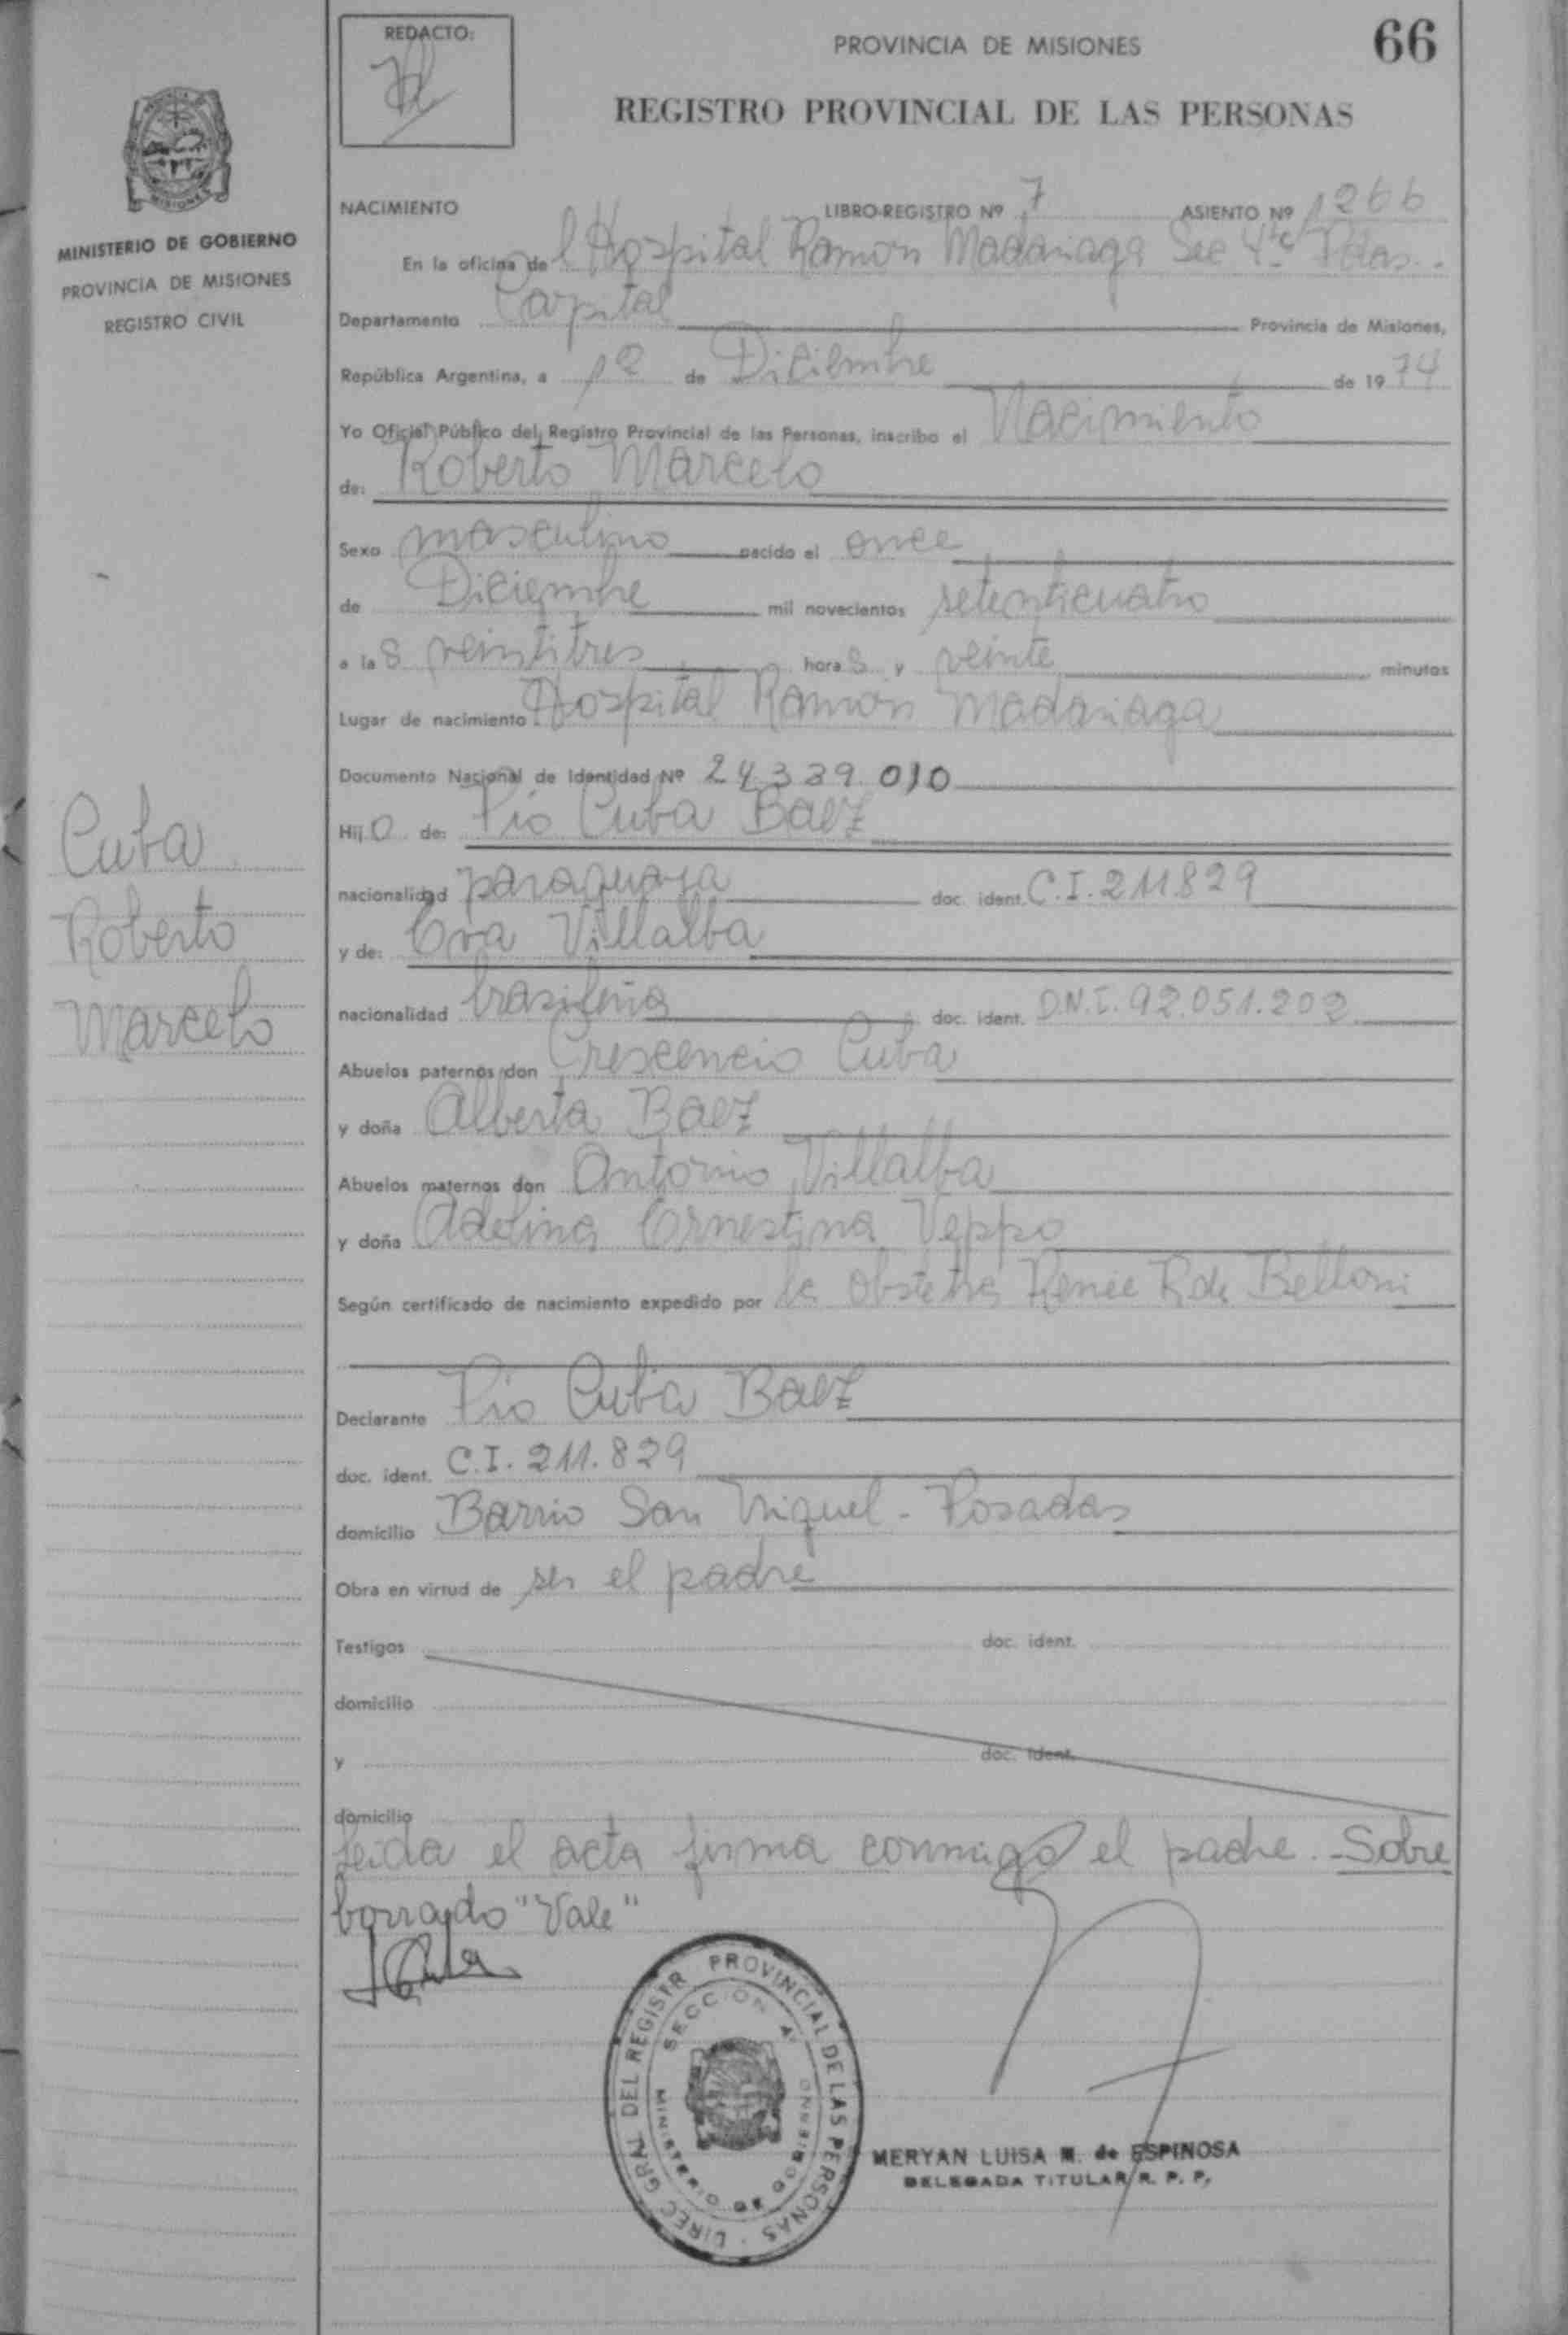 REDACTO:
PROVINCIA DE MISIONES
66
REGISTRO PROVINCIAL DE LAS PERSONAS
MINISTERIO DE GOBIERNO
PROVINCIA DE MISIONES
REGISTRO CIVIL
NACIMIENTO LIBRO-REGISTRO Nº 7 ASIENTO Nº 1266
En la oficina del Hospital Ramón Madariaga Sec 4ta Pdas.
Departamento Capital Provincia de Misiones,
República Argentina, a 12 de Diciembre de 1974
Yo Oficial Público del Registro Provincial de las Personas, inscribo el Nacimiento
de: Roberto Marcelo
Sexo masculino nacido el once
de Diciembre mil novecientos setenticuatro
a las veintitres horas y veinte minutos
Lugar de nacimiento Hospital Ramón Madariaga
Documento Nacional de Identidad Nº 24.339.010
Hijo de: Pío Cuba Baez
nacionalidad paraguaya doc. ident. C.I. 211.829
y de: Eva Villalba
nacionalidad brasileña doc. ident. D.N.I. 92.051.202
Abuelos paternos don Crescencio Cuba
y doña Alberta Baez
Abuelos maternos don Antonio Villalba
y doña Adelina Ernestina Veppo
Según certificado de nacimiento expedido por la obstetra Renée R de Belloni
Declarante Pío Cuba Baez
doc. ident. C.I. 211.829
domicilio Barrio San Miguel - Posadas
Obra en virtud de ser el padre
Testigos doc. ident.
domicilio
y doc. ident.
domicilio
Leida el acta firma conmigo el padre. Sobre
borrado "Vale"
Cuba
Roberto
Marcelo
DIREC GRAL DEL REGISTR PROVINCIAL DE LAS PERSONAS
SECCION 4
MINISTERIO DE GOBIERNO
MERYAN LUISA M. de ESPINOSA
DELEGADA TITULAR R. P. P.